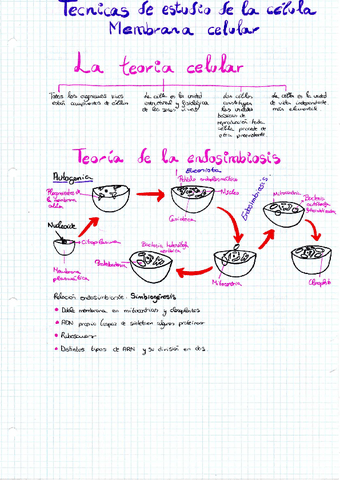 Tecnicas de estudio de la célula
Membrana celular
La teoría celular
Todos los organismos vivos
están compuestos de células
La célula es la unidad
estructural y fisiológica
de los seres vivos
Las células
constituyen
las unidades
básicas de
reproducción: toda
célula procede de
otra preexistente
La célula es la unidad
de vida independiente
más elemental
Teoría de la endosimbiosis
Autogenia
Eucariota
Retículo endoplasmático
Plegamientos de
la membrana
célula
Núcleo
Endosimbiosis
Mitocondria
Bacteria
Nucleoide
Citoplasma
Bacteria heterótrofa
aerobia
Protobacteria
Membrana
plasmática
Mitocondria
Cloroplasto
Relación endosimbionte: Simbiogénesis
• Doble membrana en mitocondrias y cloroplastos
• ADN propio (capaz de sintetizar algunas proteínas)
• Ribosomas
• Distintos tipos de ARN y su división en dos.